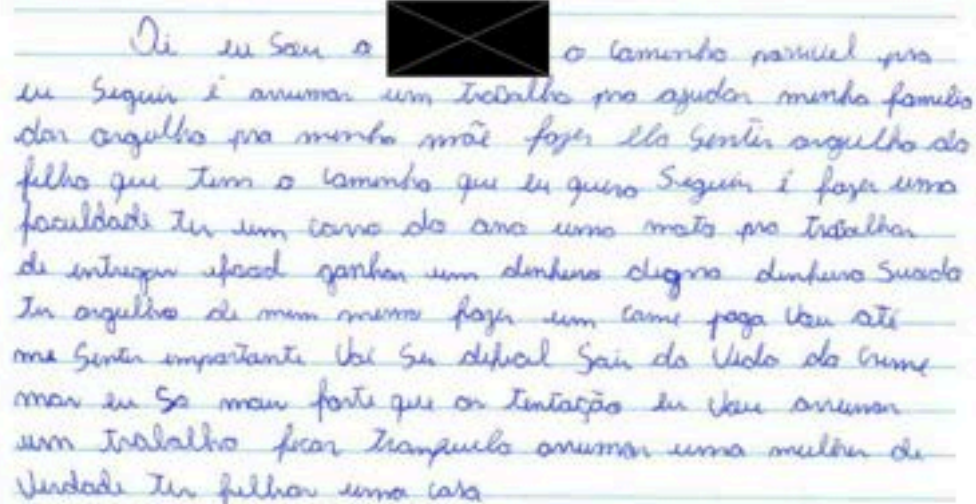 Oi eu sou o o caminho possivel pra
eu seguir é arrumar um trabalho pra ajudar minha familia
dar orgulho pra minha mãe fazer ela sentir orgulho do
filho que tem o caminho que eu quero seguir é fazer uma
faculdade ter um carro do ano uma moto pra trabalhar
de entregar ifood ganhar um dinheiro digno dinheiro suado
ter orgulho de mim mesmo fazer um carne paga vou até
me sentir importante vai ser dificel sair da vida do crime
mas eu so mais forte que as tentação eu vou arrumar
um trabalho ficar tranquilo arrumar uma mulher de
verdade ter filhos uma casa